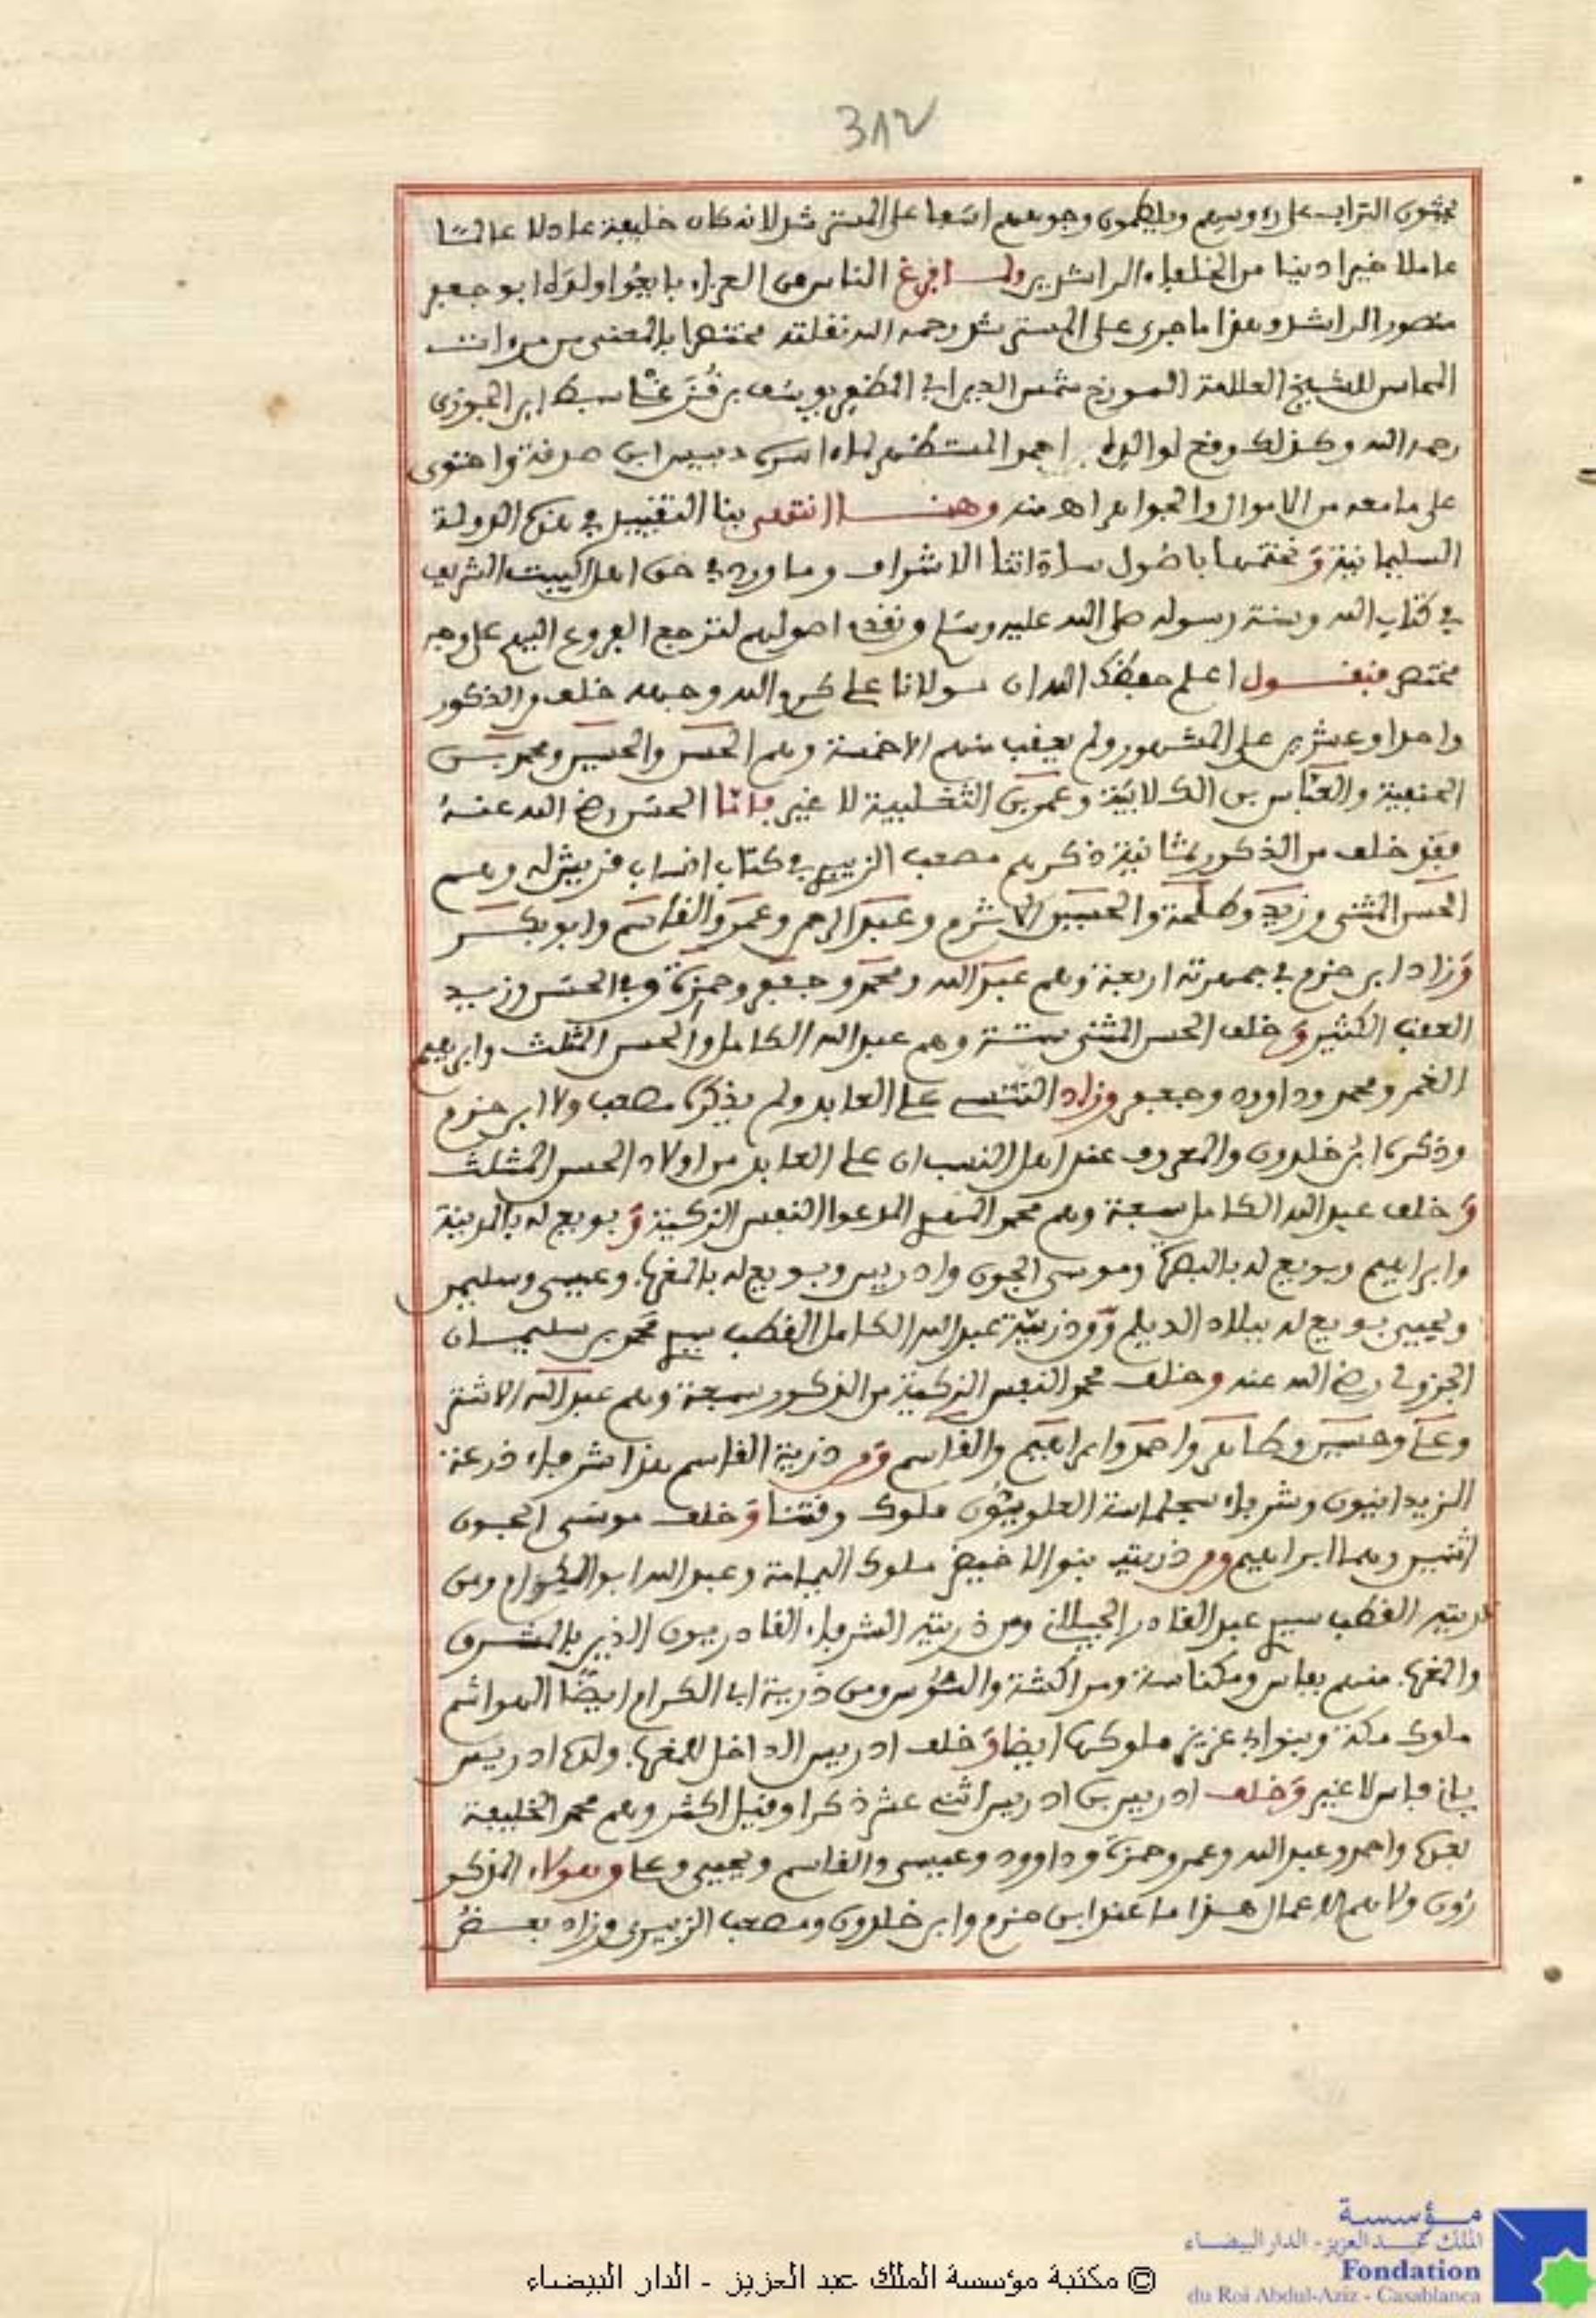 312
يحثون التراب على رءوسهم ويلطمون وجوههم اسفا على المسترشد لانه كان خليفة عادلا عالما
عاملا خيرا دينا من الخلفاء الراشدين ولما فرغ الناس من العزاء بايعوا ولده ابو جعفر
منصور الراشد وهذا ما جرى على المسترشد رحمه الله نقلته مختصرا بالمعنى من مرءات
الزمان للشيخ العلامة المورخ شمس الدين ابي المظفر يوسف بن قزغلي سبط ابن الجوزي
رحمه الله وكذلك وقع لوالده احمد المستظهر لما اسره دبيس ابن صدقة واحتوى
على ما معه من الاموال والجواهر اهـ منه وهنا انتهى بنا التقييد في هذه الدولة
السليمانية ونختمها باصول ساداتنا الاشراف وما ورد في حق اهل البيت الشريف
في كتاب الله وسنة رسوله صلى الله عليه وسلم ونقدم اصولهم لترجع الفروع اليهم على وجه
مختصر فنقول اعلم حفظك الله ان مولانا علي كرم الله وجهه خلف من الذكور
واحدا وعشرين على المشهور ولم يعقب منهم الا خمسة وهم الحسن والحسين ومحمد بن
الحنفية والعباس بن الكلابية وعمر بن التغلبية لا غير فاما الحسن رضي الله عنه
فقد خلف من الذكور ثمانية ذكرهم مصعب الزبيري في كتاب انساب قريش له وهم
الحسن المثنى وزيد وطلحة والحسين الاثرم وعبد الرحمن وعمر والقاسم وابو بكر
وزاد ابن حزم في جمهرته اربعة وهم عبد الله ومحمد وجعفر وحمزة وفي الحسن وزيد
العقب الكثير وخلف الحسن المثنى ستة وهم عبد الله الكامل والحسن المثلث وابراهيم
الغمر ومحمد وداوود وجعفر وزاد التنسي علي العابد ولم يذكره مصعب ولا ابن حزم
وذكره ابن خلدون والمعروف عند اهل النسب ان علي العابد من اولاد الحسن المثلث
وخلف عبد الله الكامل سبعة وهم محمد المهدي المدعوا النفس الزكية وبويع له بالمدينة
وابراهيم وبويع له بالبصرة وموسى الجون وادريس وبويع له بالمغرب وعيسى وسليمن
ويحيى بويع له ببلاد الديلم ومن ذرية عبد الله الكامل القطب سيدي محمد بن سليمان
الجزولي رضي الله عنه وخلف محمد النفس الزكية من الذكور سبعة وهم عبد الله الاشتر
وعلي وحسين وطاهر واحمد وابراهيم والقاسم ومن ذرية القاسم هذا شرفاء درعة
الزيدانيون وشرفاء سجلماسة العلويون ملوك وقتنا وخلف موسى الجون
اثنين وهما ابراهيم ومن ذريته بنو الاخيضر ملوك اليمامة وعبد الله ابو الكرام ومن
ذريته القطب سيدي عبد القادر الجيلاني ومن ذريته الشرفاء القادريون الذين بالمشرق
والمغرب منهم بفاس ومكناسة ومراكشة والسوس ومن ذرية ابي الكرام ايضا الهواشم
ملوك مكة وبنوا ابي عزيز ملوكها ايضا وخلف ادريس الداخل للمغرب ولده ادريس
باني فاس لا غير وخلف ادريس بن ادريس اثني عشر ذكرا وقيل اكثر وهم محمد الخليفة
بعده واحمد وعبد الله وعمر وحمزة وداوود وعيسى والقاسم ويحيى وعلي وهولاء المذكو
رون ولاهم الاعمال هذا ما عند ابن حزم وابن خلدون ومصعب الزبيري وزاد بعض
© مكتبة مؤسسة الملك عبد العزيز - الدار البيضاء
مؤسسة
الملك عبد العزيز - الدار البيضاء
Fondation
du Roi Abdul-Aziz - Casablanca